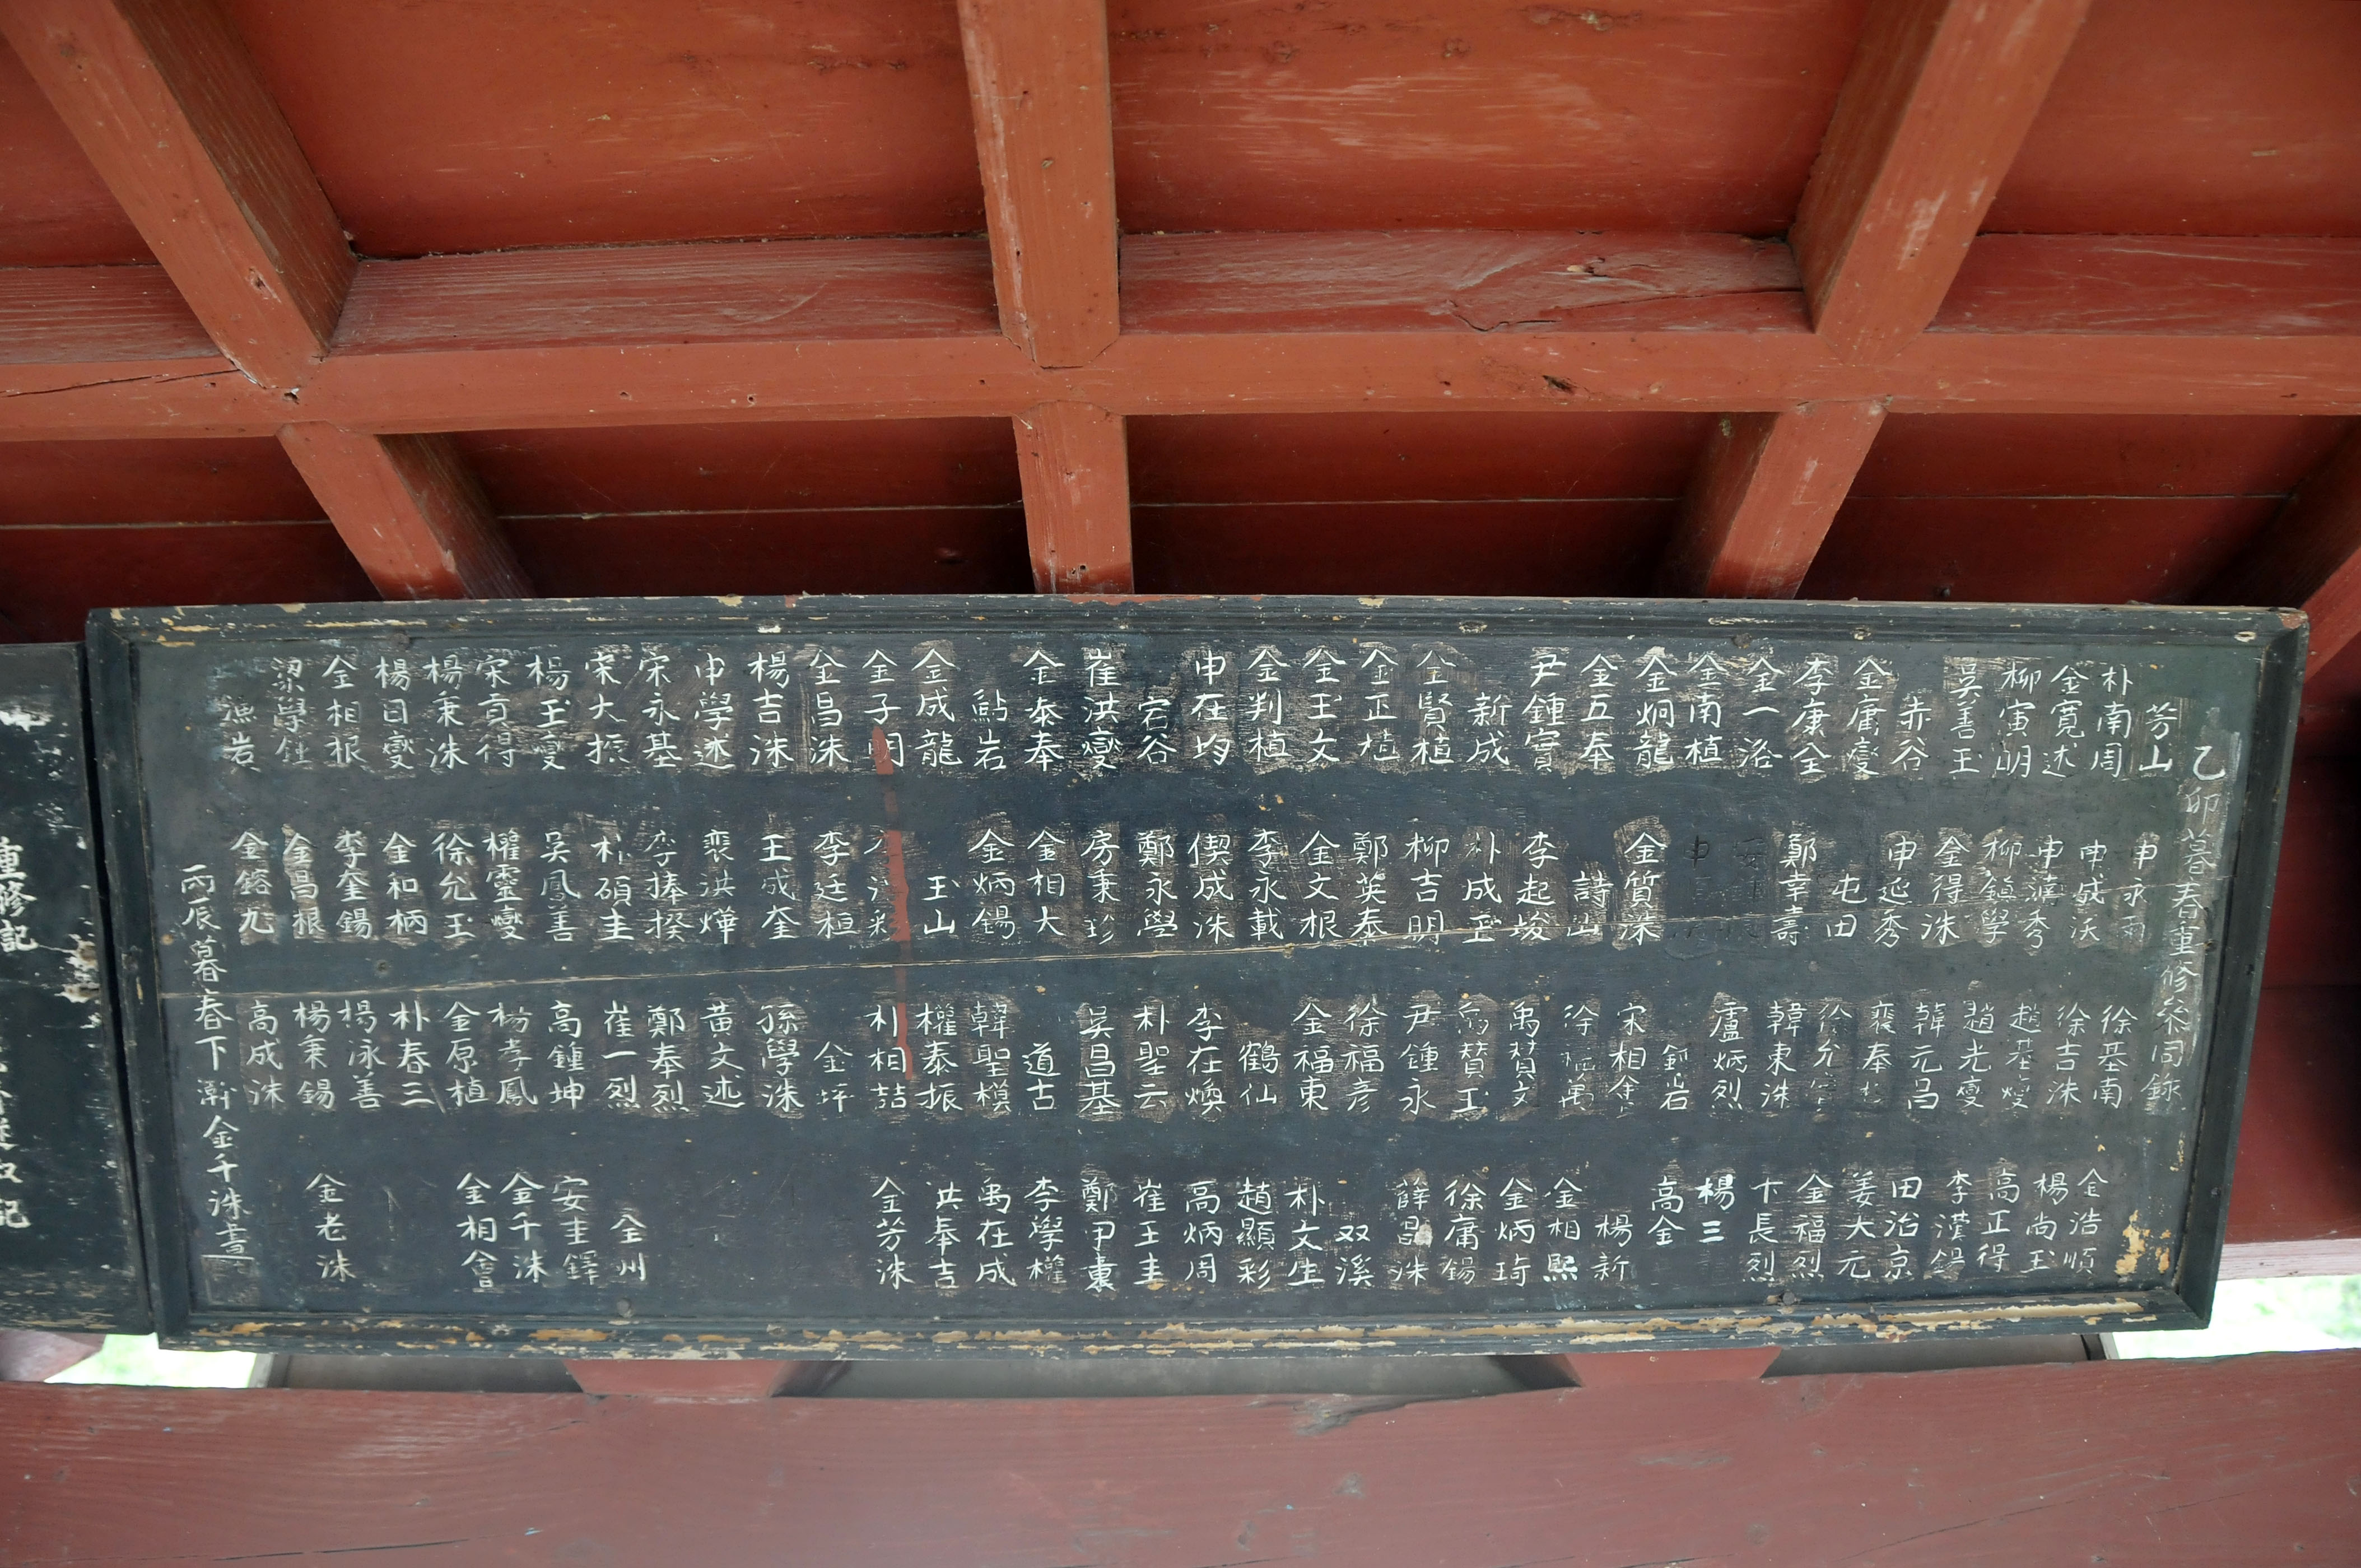 乙卯暮春重修叅同錄
芳山
朴南周
金寬述
柳寅明
吳善玉
赤谷
金庸燮
李庚全
金一洛
金南植
金炯龍
金五奉
尹鍾實
新成
金賢植
金正植
金玉文
金判植
申在均
宕谷
崔洪燮
金泰奉
鮎岩
金成龍
金子明
金昌洙
楊吉洙
申學述
宋永基
宋大振
楊玉燮
宋貢得
楊秉洙
楊日燮
金相根
梁學
漁岩
申永雨
申成沃
申 秀
柳鎮學
金得洙
申延秀
屯田
鄭幸壽
金質洙
詩山
李起埈
朴成玉
柳吉明
鄭英泰
金文根
李永載
偰成洙
鄭永學
房秉珍
金相大
金炳錫
玉山
李廷桓
王成奎
裵洪燁
李捧揆
朴碩圭
吳鳳善
權靈燮
徐允玉
金和柄
李奎錫
金昌根
金鎔九
徐基南
徐吉洙
趙基燮
趙光燮
韓元昌
裵奉
徐允
韓東洙
盧炳烈
釰岩
宋相
徐 萬
禹贊文
禹贊玉
尹鍾永
徐福彦
金福東
鶴仙
李在煥
朴聖云
吳昌基
道古
韓聖模
權泰振
朴相喆
金坪
孫學洙
黃文述
鄭奉烈
崔一烈
高鍾坤
楊孝鳳
金原植
朴春三
楊泳善
楊秉錫
高成洙
金浩順
楊尚玉
高正得
李瀅錫
田治京
姜大元
金福烈
卞長烈
楊三
高金
楊新
金相熙
金炳琦
徐庸錫
薛昌洙
双溪
朴文生
趙顯彩
高炳周
崔王圭
鄭甲東
李學權
禹在成
洪奉吉
金芳洙
全州
安圭鐸
金千洙
金相會
金老洙
丙辰暮春下澣金千洙書
重修記